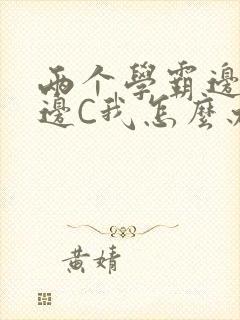 两个學霸邊
邊C我怎麼
黄婧